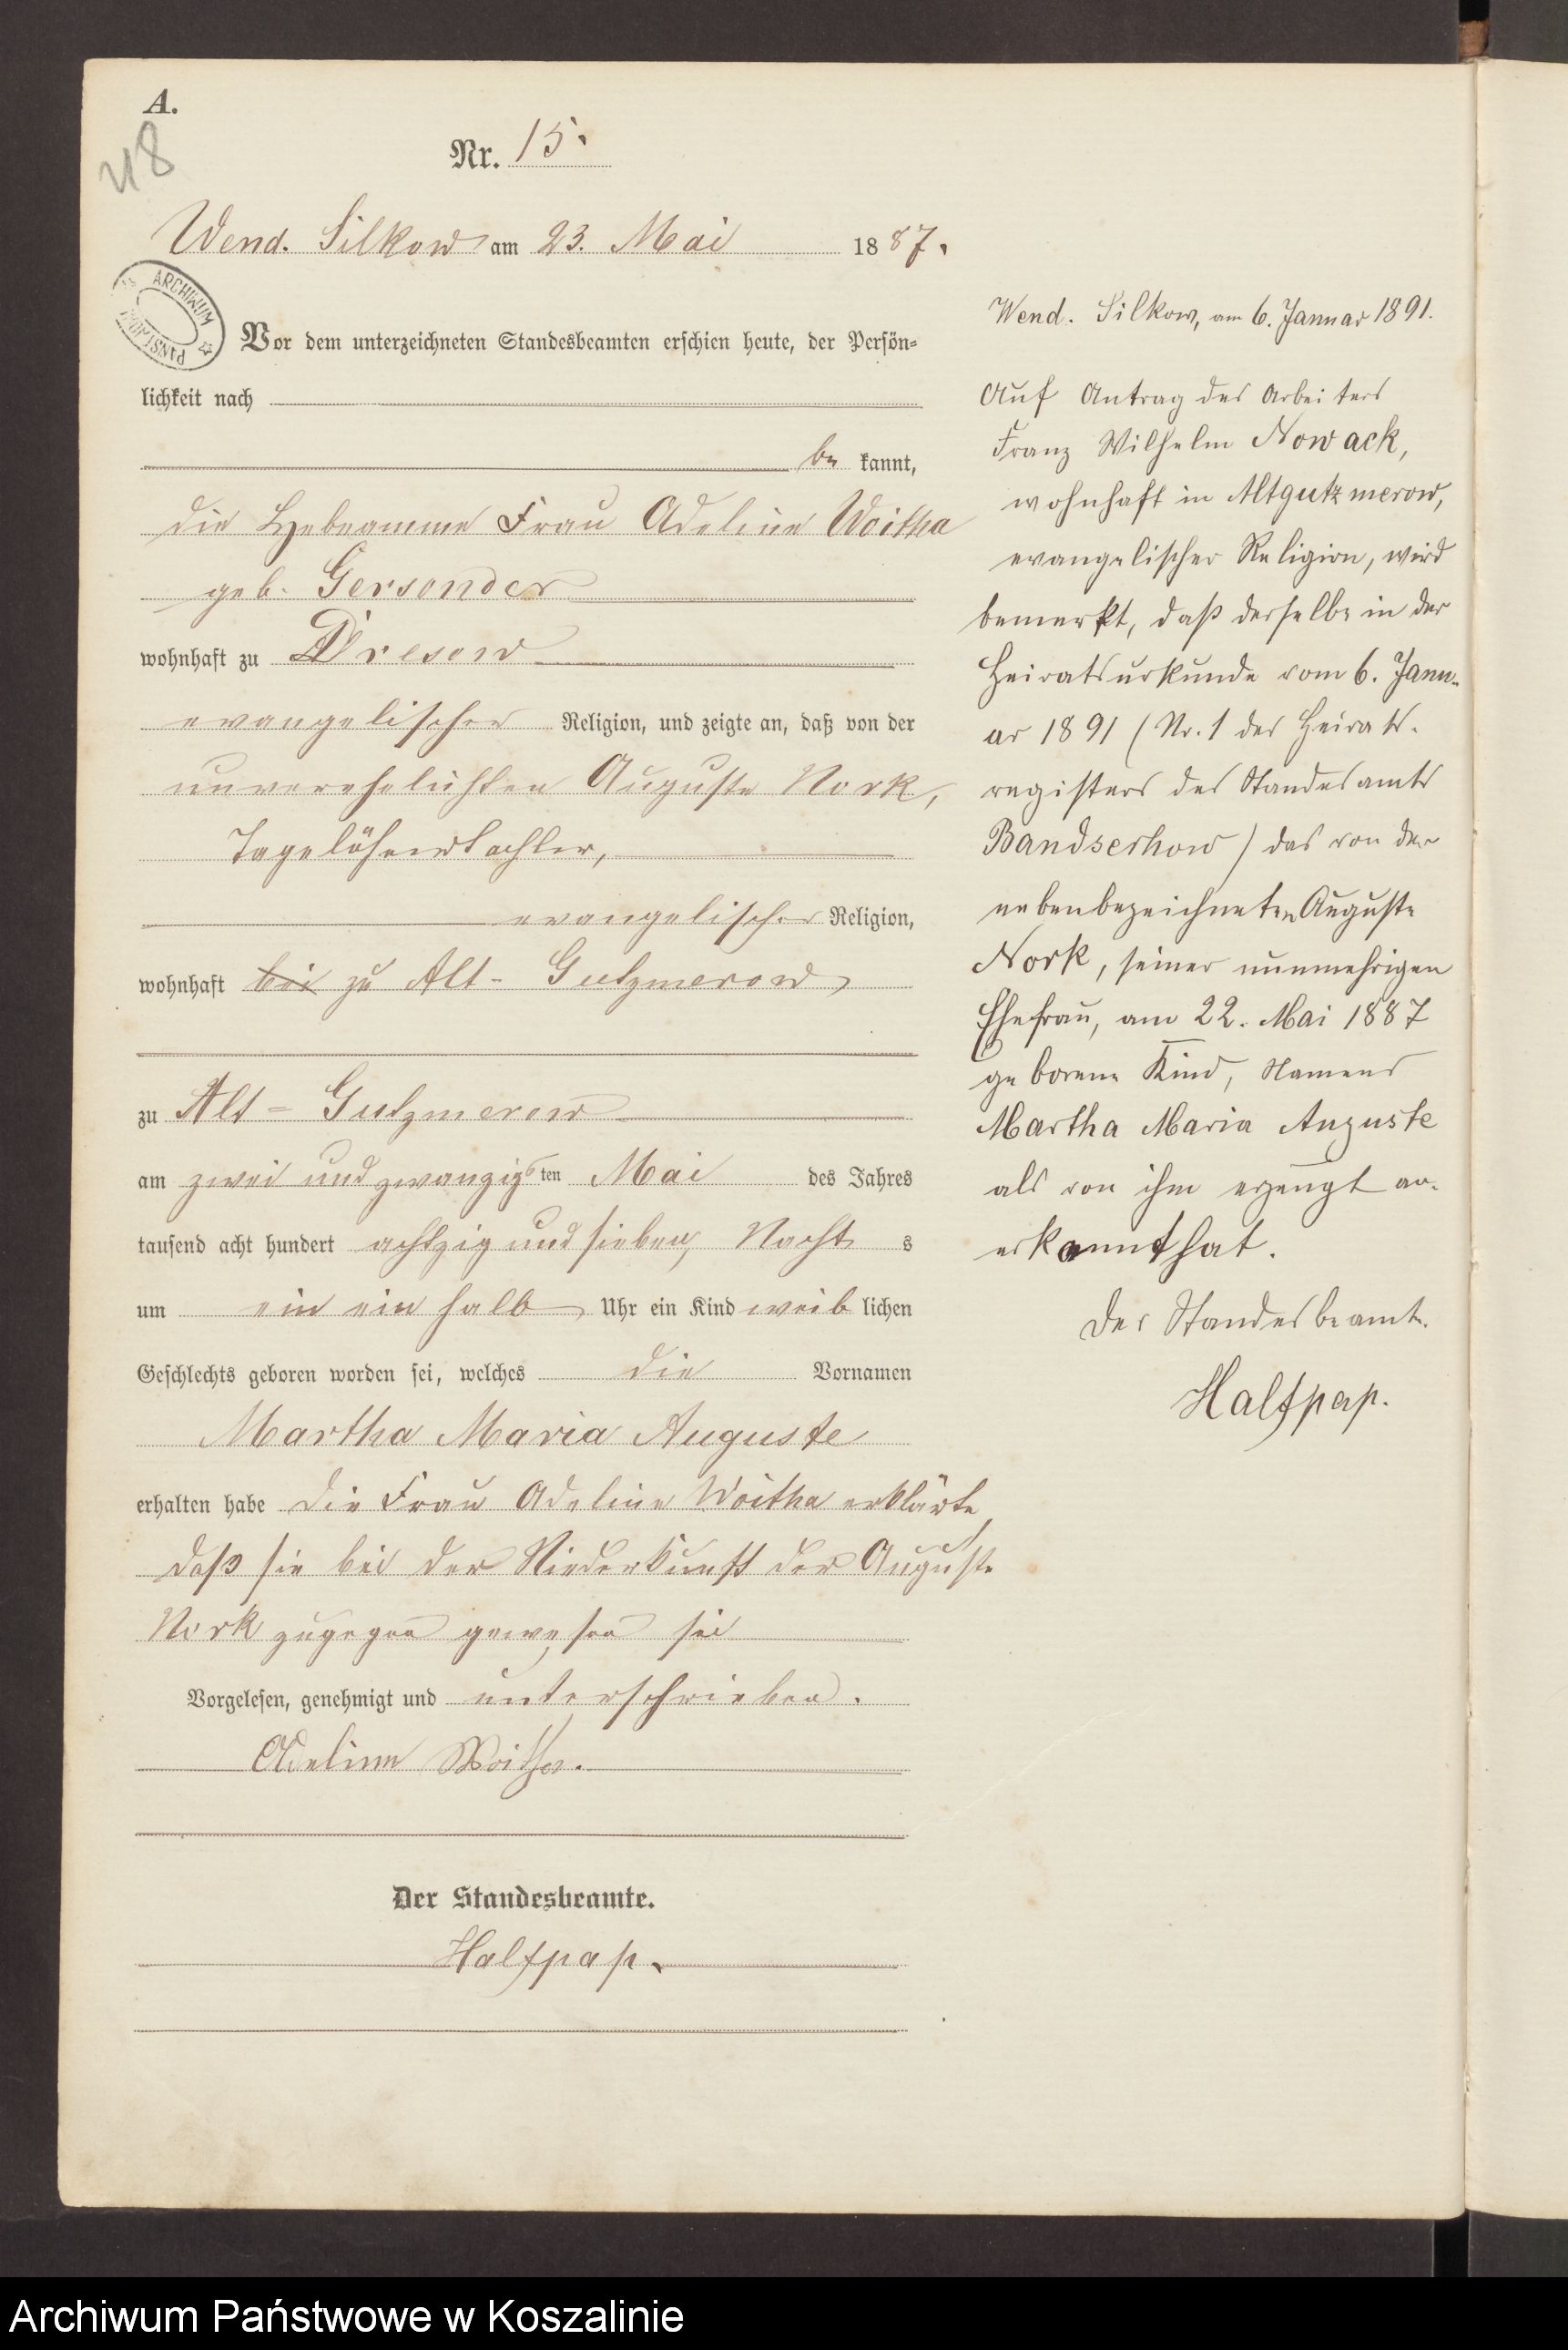 A.
48
Nr. 15.
Wend. Silkow am 23. Mai 1887.
ARCHIWUM
PAŃSTWOWE
Vor dem unterzeichneten Standesbeamten erschien heute, der Persön=
lichkeit nach
be kannt,
die Hebeamme Frau Adeline Woitha
geb. Gersonder
wohnhaft zu Dresow
evangelischer Religion, und zeigte an, daß von der
unverehelichten Auguste Nork,
Tagelöhnertochter,
evangelischer Religion,
wohnhaft bei zu Alt-Gutzmerow,
zu Alt=Gutzmerow
am zwei und zwanzigsten Mai des Jahres
tausend acht hundert achtzig und sieben, Nachts
um ein ein halb Uhr ein Kind weiblichen
Geschlechts geboren worden sei, welches die Vornamen
Martha Maria Auguste
erhalten habe die Frau Adeline Woitha erklärte,
daß sie bei der Niederkunft der Auguste
Nork zugegen gewesen sei
Vorgelesen, genehmigt und unterschrieben.
Adeline Woitha.
Der Standesbeamte.
Halfpap.
Wend. Silkow, am 6. Januar 1891.
Auf Antrag des Arbeiters
Franz Wilhelm Nowack,
wohnhaft in Altgutzmerow,
evangelischer Religion, wird
bemerkt, daß derselbe in der
Heiratsurkunde vom 6. Janu-
ar 1891 (Nr. 1 des Heirats-
registers des Standesamts
Bandsechow) das von der
nebenbezeichneten Auguste
Nork, seiner nunmehrigen
Ehefrau, am 22. Mai 1887
geborene Kind, Namens
Martha Maria Auguste
als von ihm erzeugt an-
erkannt hat.
Der Standesbeamte.
Halfpap.
Archiwum Państwowe w Koszalinie